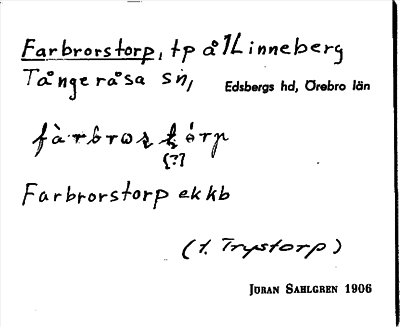 Farbrorstorp, tp å 1/L inneberg
Tångeråsa sn, Edsbergs hd, Örebro län
[?]
Farbrorstorp ekkb
(t. Trystorp)
JÖRAN SAHLGREN 1906